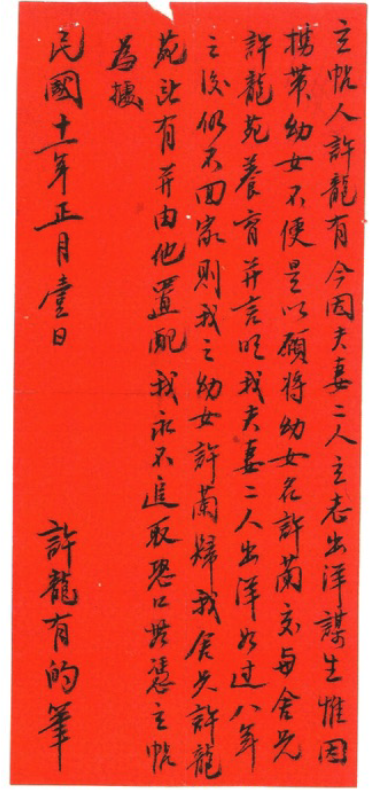 立帖人許龍有今因夫妻二人立志出洋謀生惟因
携帶幼女不便是以願將幼女名許蘭交与舍兄
許龍苑養育并言明我夫妻二人出洋如过八年
之後仍不回家則我之幼女許蘭歸我舍兄許龍
苑所有并由他置配我永不追取恐口無憑立帖
為據
民國十一年正月壹日
許龍有的筆